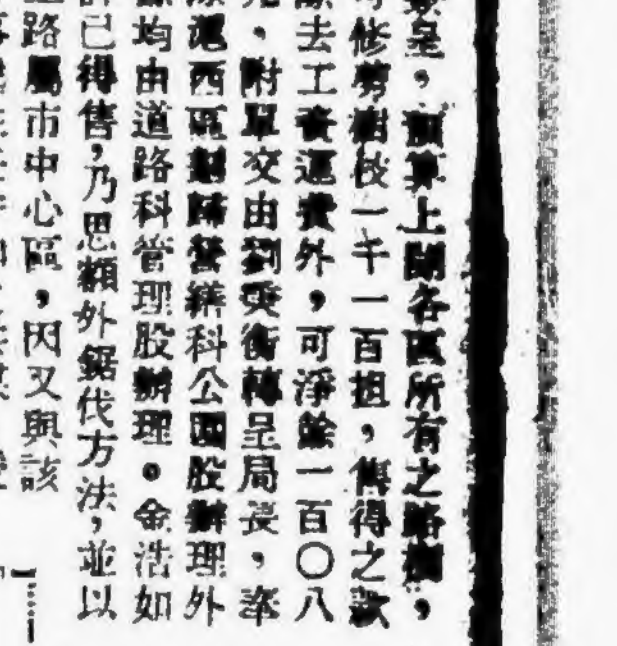 是，預算上開各區所有之路樹，
修剪樹枝一千一百担，售得之款
去工資運費外，可淨餘一百〇八
，附單交由劉奕衡轉呈局長，奉
滬西區劃歸營繕科公園股辦理外
均由道路科管理股辦理。金浩如
已得售，乃思額外鋸伐方法，並以
路屬市中心區，因又與該